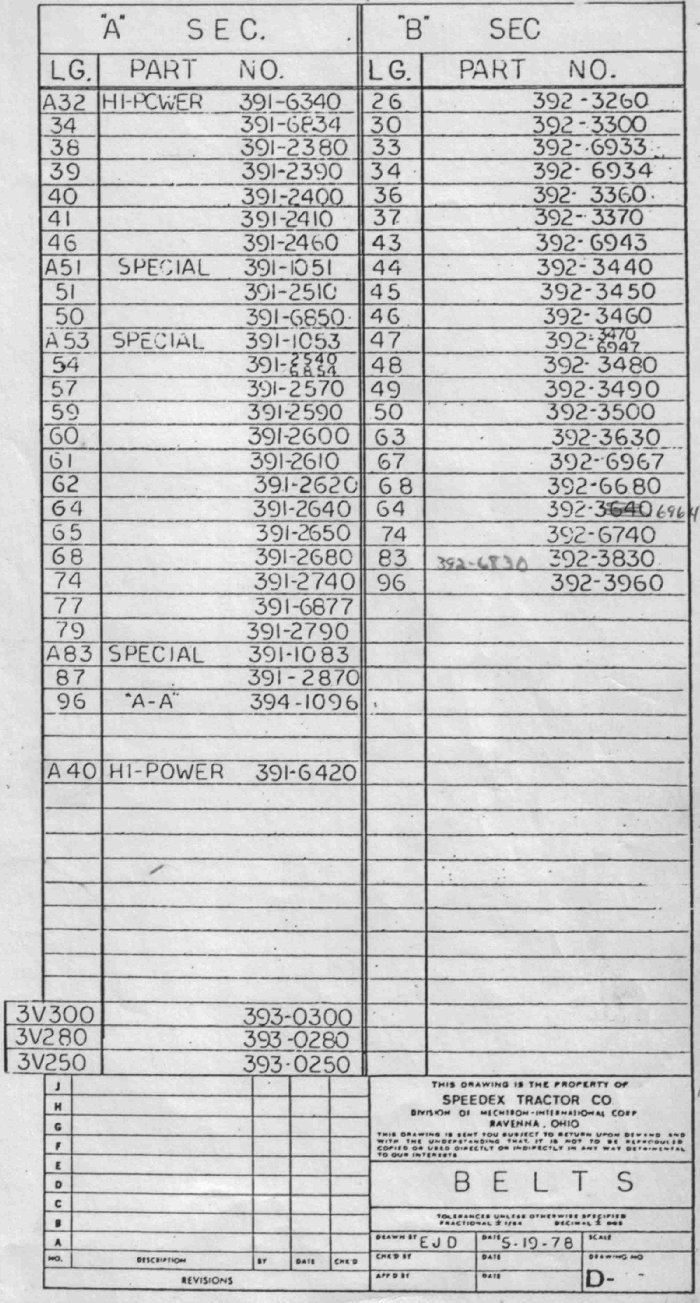 "A" SEC. "B" SEC
LG. PART NO. LG. PART NO.
A32 HI-POWER 391-6340 26 392-3260
34 391-6834 30 392-3300
38 391-2380 33 392-6933
39 391-2390 34 392-6934
40 391-2400 36 392-3360
41 391-2410 37 392-3370
46 391-2460 43 392-6943
A51 SPECIAL 391-1051 44 392-3440
51 391-2510 45 392-3450
50 391-6850 46 392-3460
A53 SPECIAL 391-1053 47 392-3470 6947
54 391-2540 6854 48 392-3480
57 391-2570 49 392-3490
59 391-2590 50 392-3500
60 391-2600 63 392-3630
61 391-2610 67 392-6967
62 391-2620 68 392-6680
64 391-2640 64 392-3640 6964
65 391-2650 74 392-6740
68 391-2680 83 392-6830 392-3830
74 391-2740 96 392-3960
77 391-6877
79 391-2790
A83 SPECIAL 391-1083
87 391-2870
96 "A-A" 394-1096
A40 HI-POWER 391-6420
3V300 393-0300
3V280 393-0280
3V250 393-0250
J
H
G
F
E
D
C
B
A
NO. DESCRIPTION BY DATE CHK'D
REVISIONS
THIS DRAWING IS THE PROPERTY OF
SPEEDEX TRACTOR CO.
DIVISION OF MECHTRON-INTERNATIONAL CORP
RAVENNA, OHIO
THIS DRAWING IS SENT YOU SUBJECT TO RETURN UPON DEMAND AND
WITH THE UNDERSTANDING THAT IT IS NOT TO BE REPRODUCED
COPIED OR USED DIRECTLY OR INDIRECTLY IN ANY WAY DETRIMENTAL
TO OUR INTERESTS
BELTS
TOLERANCES UNLESS OTHERWISE SPECIFIED
FRACTIONAL ± 1/64 DECIMAL ± .005
DRAWN BY EJD DATE 5-19-78 SCALE
CHK'D BY DATE DRAWING NO
APP'D BY DATE D-